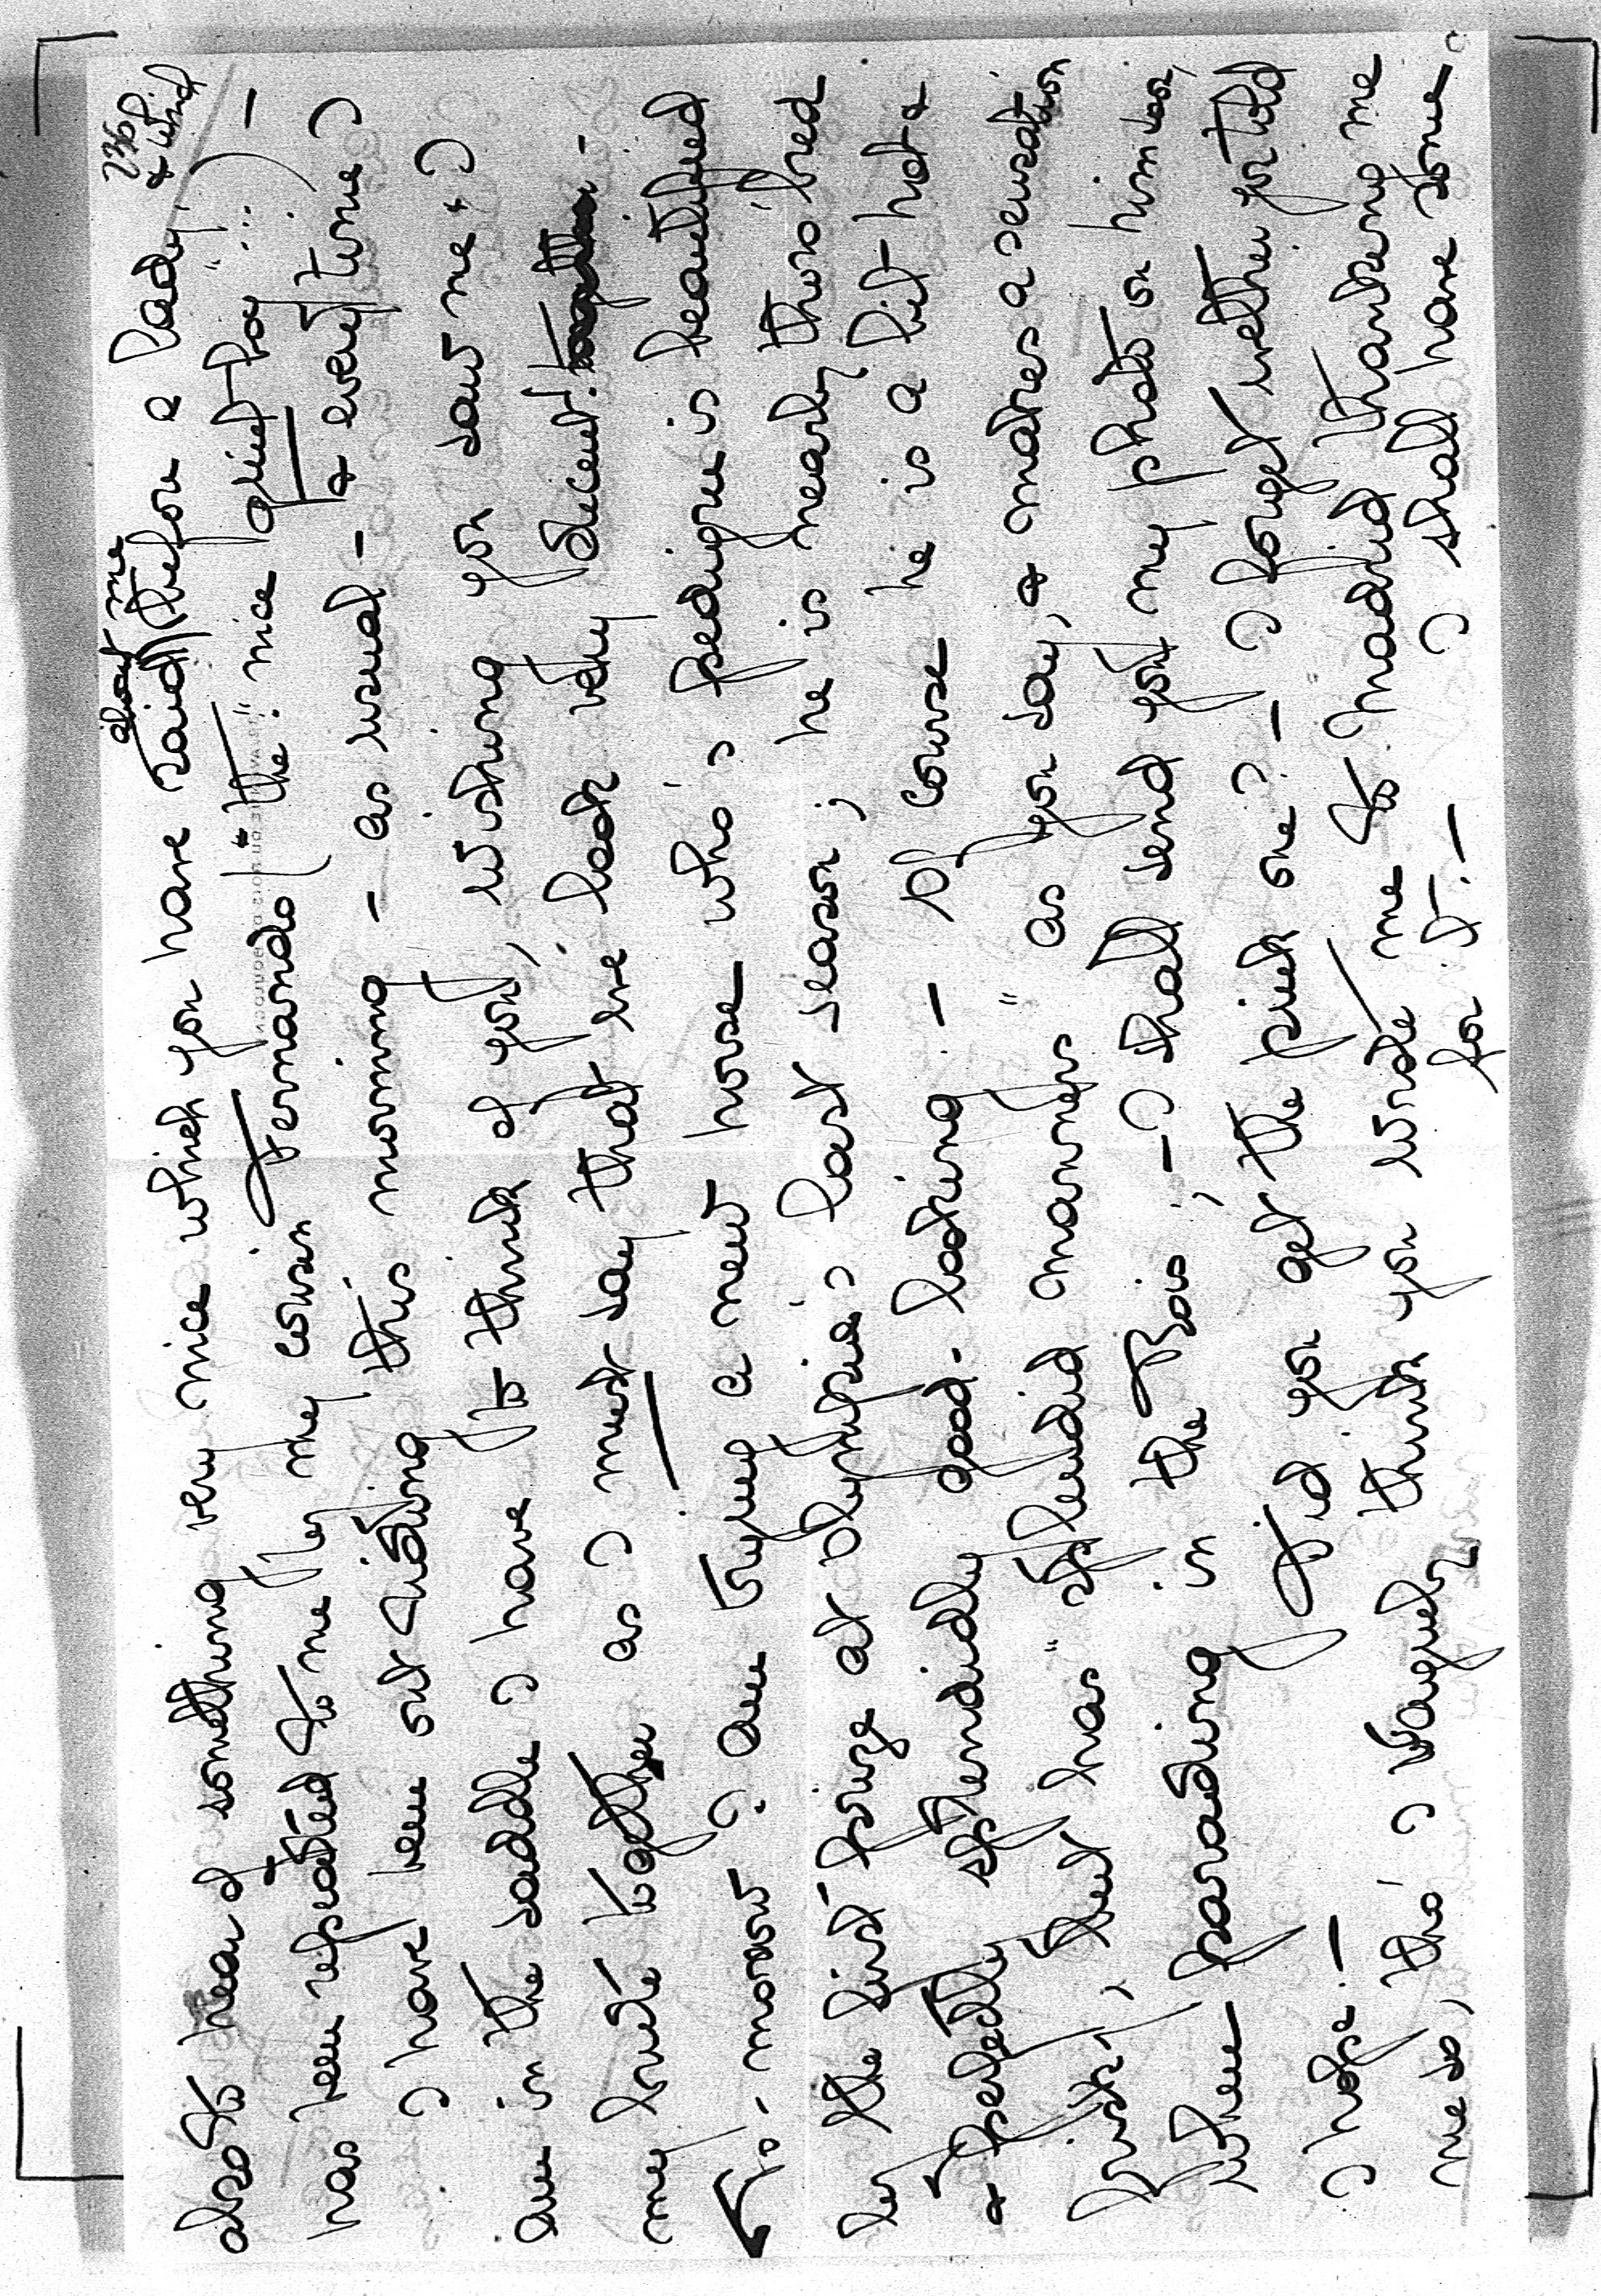 236
also to hear of something very nice which you have said about me (before a lady, & which
has been repeated to me by my cousin Fernando ("the" nice girl-boy...) –
I have been out riding this morning – as usual – & every time I
am in the saddle I have to think of you, wishing you saw me & I
my brute together as I must say that we look very decent!
To-morrow I am trying a new horse who's pedigree is beautiful
he the first prize at Olympia's last season; he is nearly thoro'bred
& perfectly splendidly good-looking. – Of course he is a bit hot &
but has "splendid manners" as you say, & makes a sensation
when parading in the Bois; – I shall send you my photo on him soon,
I hope! – Did you get the pink one? – I forget wether you told
me so, tho' I vaguely think you wrote me to Madrid thanking me
for it. – I shall have some